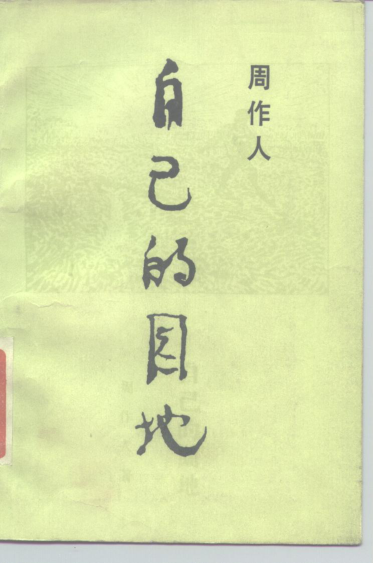 周作人
自己的园地